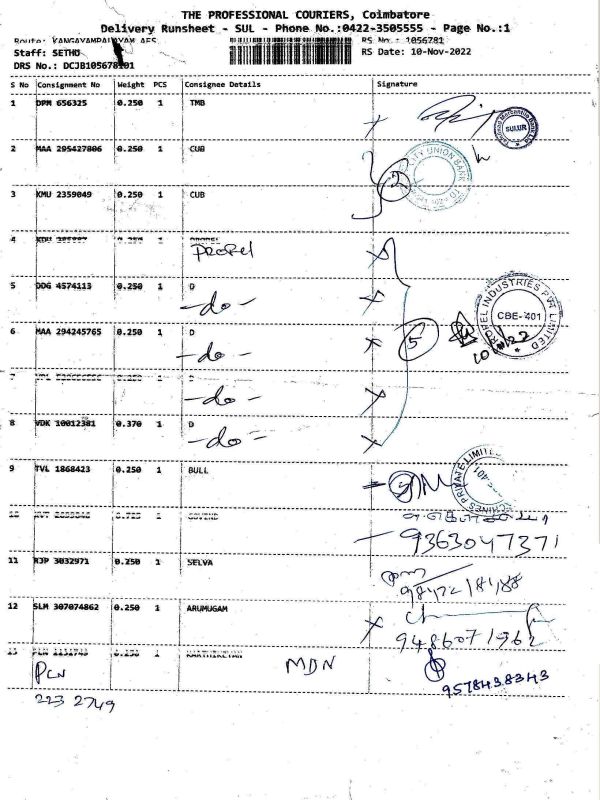 THE PROFESSIONAL COURIERS, Coimbatore
Delivery Runsheet - SUL - Phone No.:0422-3505555 - Page No.:1
Route: KANGAYAMPALAYAM AFS RS No. : 1056781
Staff: SETHU RS Date: 10-Nov-2022
DRS No.: DCJB105678101
S No Consignment No Weight PCS Consignee Details Signature
1 DPM 656325 0.250 1 TMB
SULUR
2 MAA 295427806 0.250 1 CUB
CITY UNION BANK LTD
2
3 KMU 2359049 0.250 1 CUB
4 0.250 1 PROPEL
PROPEL
5 DDG 4574113 0.250 1 D
-do-
PROPEL INDUSTRIES PVT LIMITED
CBE-401
6 MAA 294245765 0.250 1 D
-do- 5
7 0.250 1 D
-do-
8 VDK 10012381 0.370 1 D
-do-
9 TVL 1868423 0.250 1 BULL
PRIVATE LIMITED
10 0.725 1 GOVIND
9363047371
11 RJP 3032971 0.250 1 SELVA
12 SLM 307074862 0.250 1 ARUMUGAM
13 PCN 1 KARTHIKEYAN
PCN MDN
9578438343
223 2749